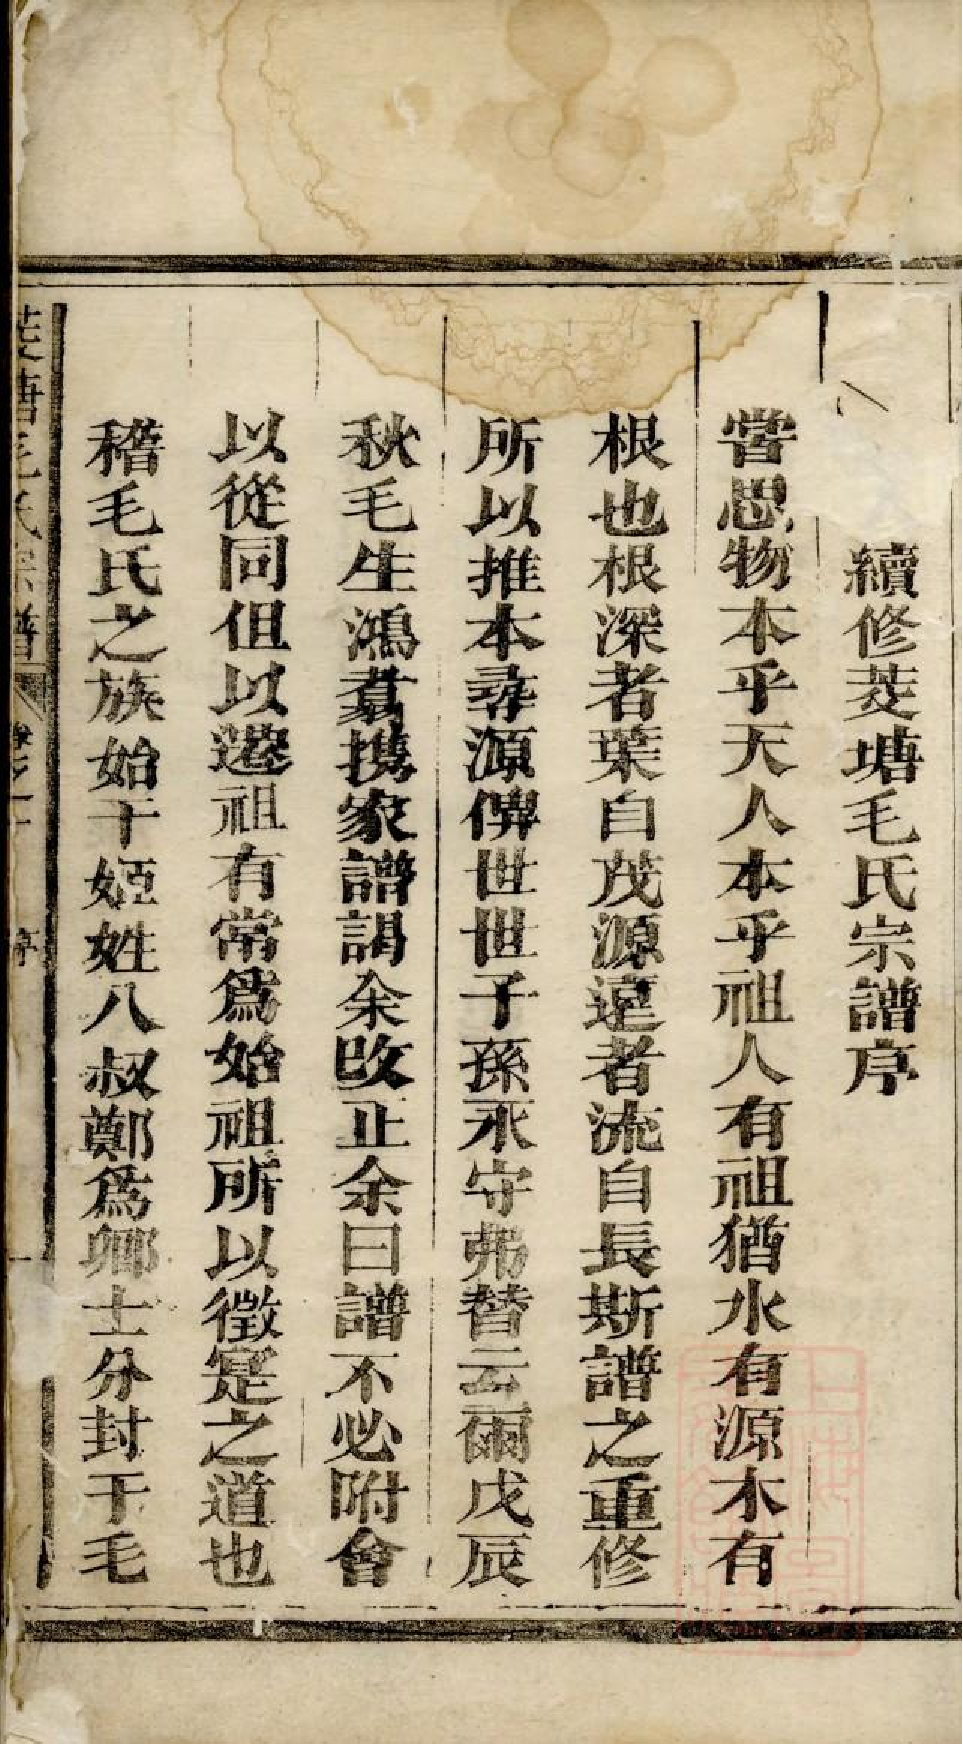 續修茭塘毛氏宗譜序
嘗思物本乎天人本乎祖人有祖猶水有源木有
根也根深者葉自茂源遠者流自長斯譜之重修
所以推本尋源俾世世子孫永守弗替云爾戊辰
秋毛生鴻翥携家譜謁余改正余曰譜不必附會
以從同但以遷祖有常爲始祖所以徵寔之道也
稽毛氏之族始于姬姓八叔鄭爲卿士分封于毛
茭塘毛氏宗譜 卷之一 序 一